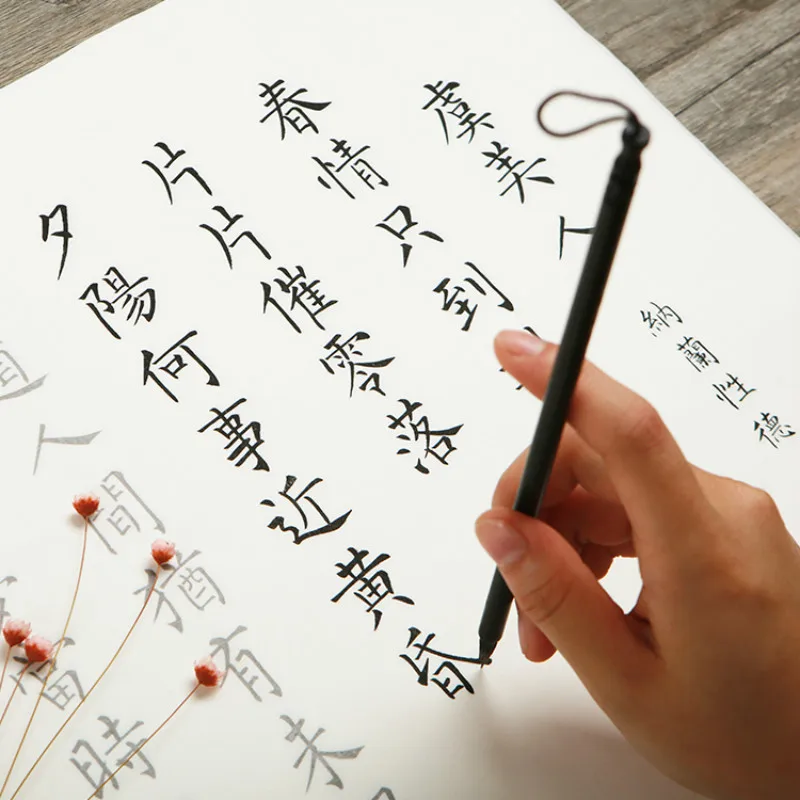 虞美人 納蘭性德
春情只到
片片催零落
夕陽何事近黃昏
道人間猶有未
當時